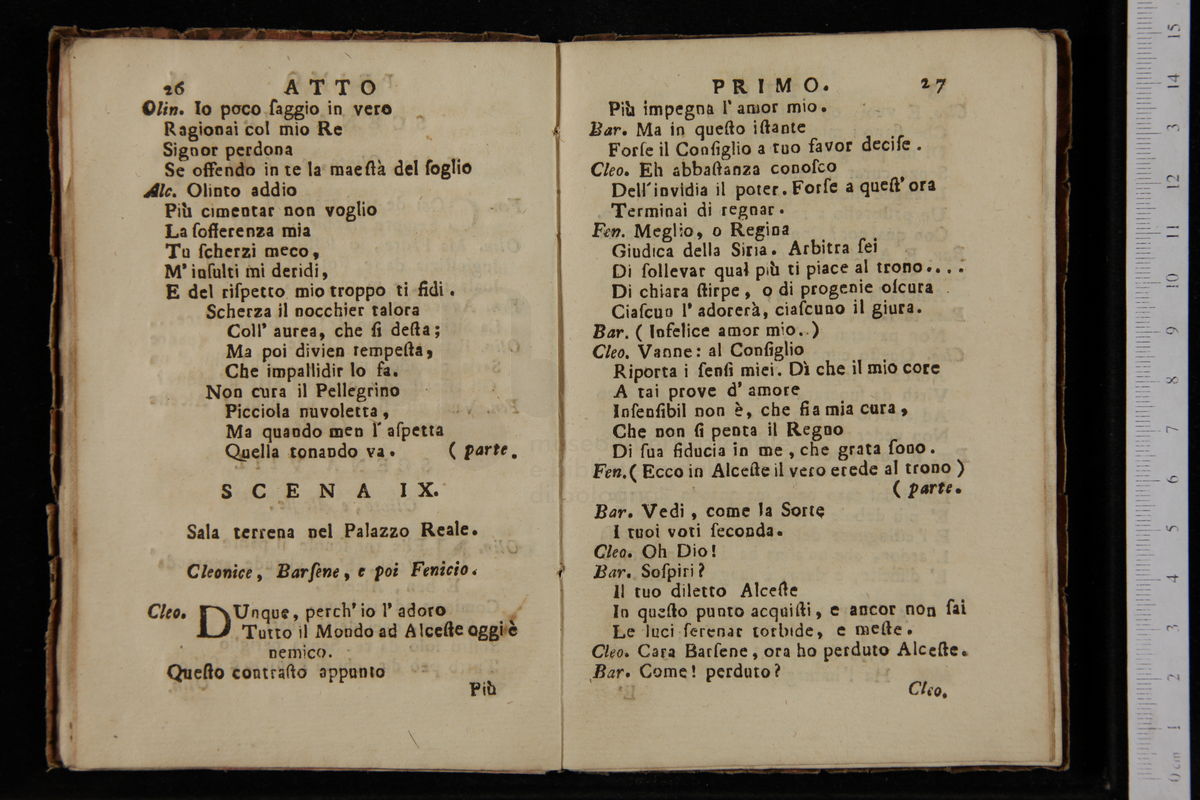 26 ATTO
Olin. Io poco ſaggio in vero
Ragionai col mio Re
Signor perdona
Se offendo in te la maeſtà del ſoglio
Alc. Olinto addio
Più cimentar non voglio
La ſofferenza mia
Tu ſcherzi meco,
M' inſulti mi deridi,
E del riſpetto mio troppo ti fidi.
Scherza il nocchier talora
Coll' aurea, che ſi deſta;
Ma poi divien tempeſta,
Che impallidir lo fa.
Non cura il Pellegrino
Picciola nuvoletta,
Ma quando men l' aſpetta
Quella tonando va. ( parte.
SCENA IX.
Sala terrena nel Palazzo Reale.
Cleonice, Barſene, e poi Fenicio.
Cleo. DUnque, perch' io l' adoro
Tutto il Mondo ad Alceſte oggi è
nemico.
Queſto contraſto appunto
Più
PRIMO. 27
Più impegna l' amor mio.
Bar. Ma in queſto iſtante
Forſe il Conſiglio a tuo favor deciſe.
Cleo. Eh abbaſtanza conoſco
Dell' invidia il poter. Forſe a queſt' ora
Terminai di regnar.
Fen. Meglio, o Regina
Giudica della Siria. Arbitra ſei
Di ſollevar qual più ti piace al trono....
Di chiara ſtirpe, o di progenie oſcura
Ciaſcun l' adorerà, ciaſcuno il giura.
Bar. ( Infelice amor mio..)
Cleo. Vanne: al Conſiglio
Riporta i ſenſi miei. Dì che il mio core
A tai prove d' amore
Inſenſibil non è, che fia mia cura,
Che non ſi penta il Regno
Di ſua fiducia in me, che grata ſono.
Fen. ( Ecco in Alceſte il vero erede al trono )
( parte.
Bar. Vedi, come la Sorte
I tuoi voti ſeconda.
Cleo. Oh Dio!
Bar. Soſpiri?
Il tuo diletto Alceſte
In queſto punto acquiſti, e ancor non ſai
Le luci ſerenar torbide, e meſte.
Cleo. Cara Barſene, ora ho perduto Alceſte.
Bar. Come! perduto?
Cleo.